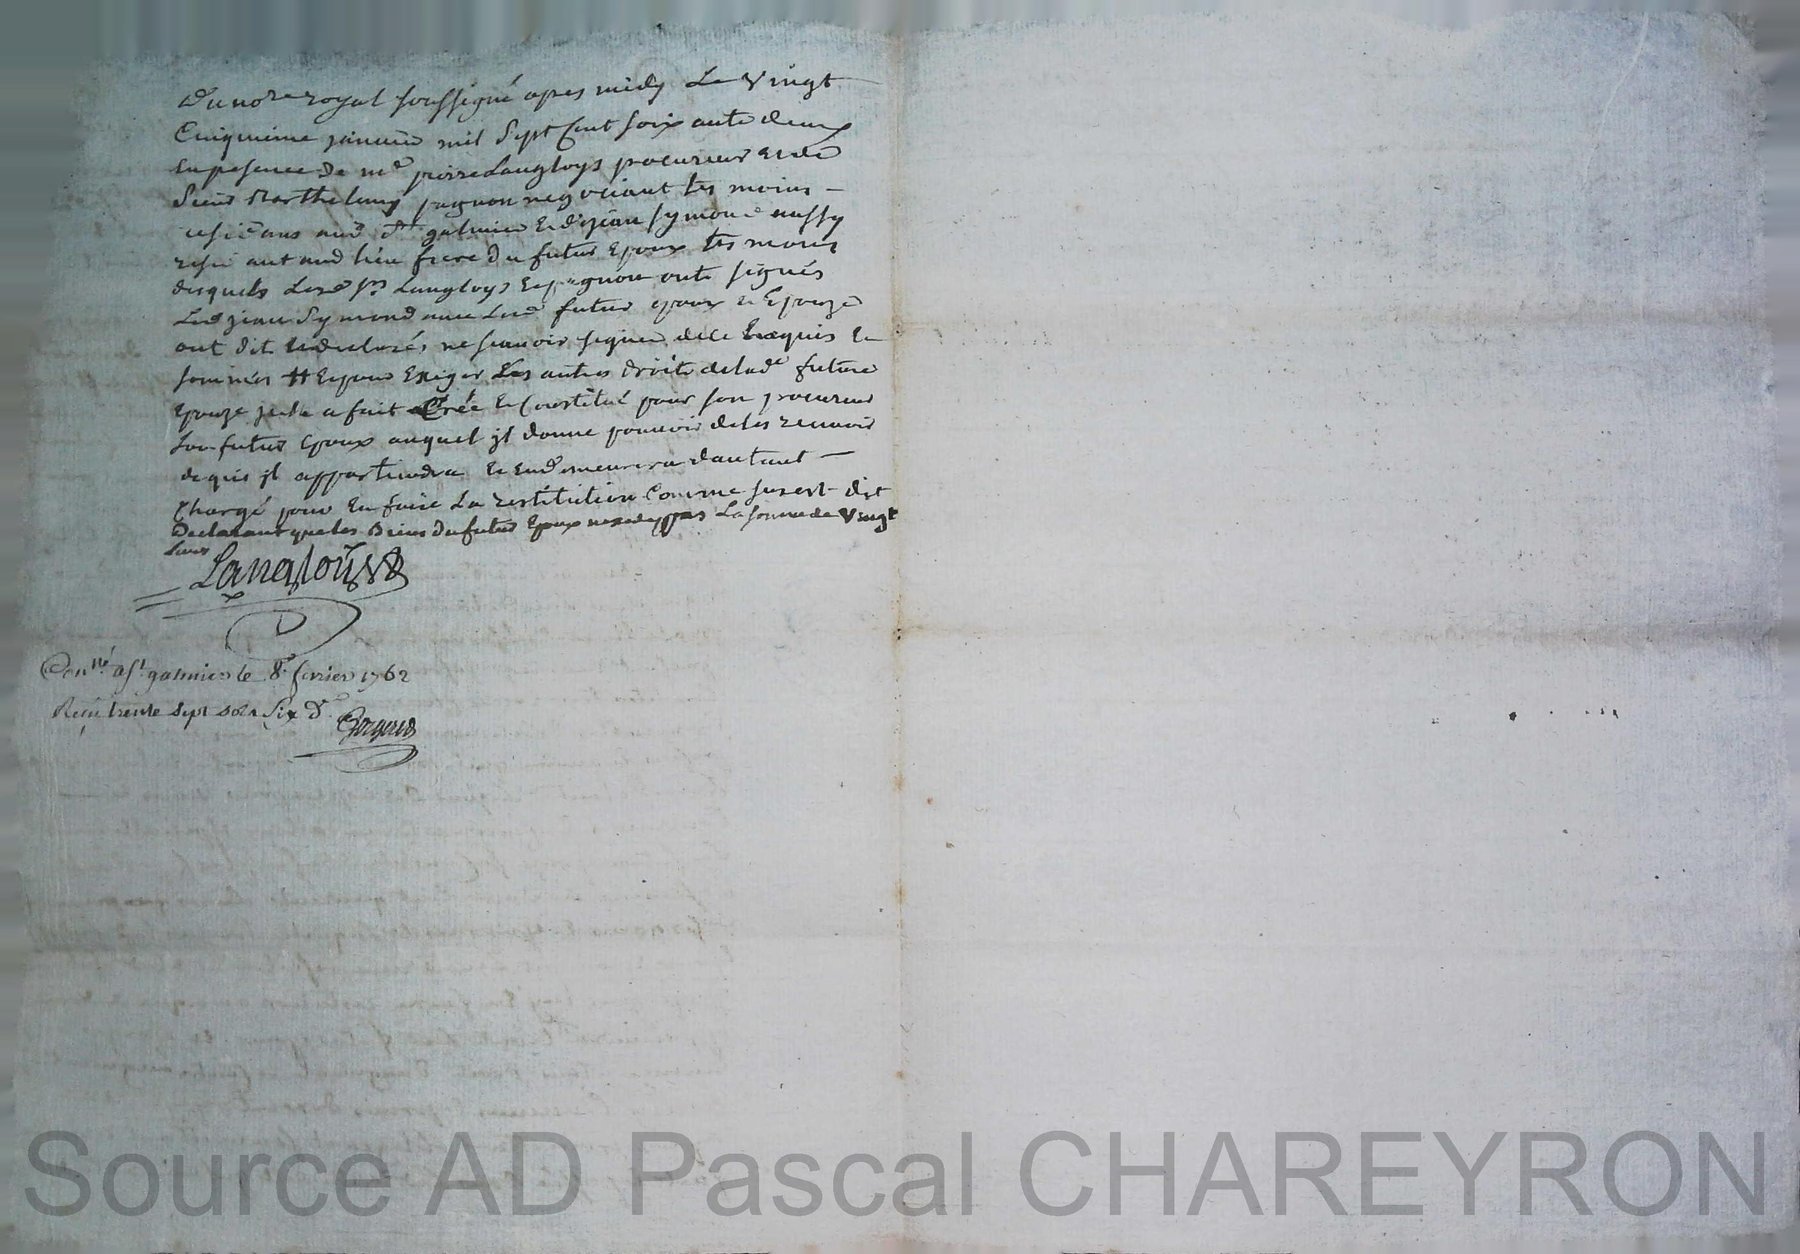 Du no.re royal soussigné apres midy Le Vingt
Cinquieme janvier mil Sept Cent soix ante deux
En presence de m.e pierre Langloys procureur et de
Sieur Barthelemy pagnon negotiant tes moins
residans aud. St galmier et de jean symond aussy
resid ant aud lieu frere du futur Epoux tes moins
desquels Lesd srs Langloys et pagnon ont signés
Led jean Symond avec Led futur epoux et Epouze
ont dit et declarés ne scavoir signer de ce Enquis et
sommés # Et pour Exiger Les autres droits de lad.e future
Epouze jcelle a fait Créé et Constitué pour son procureur
son futur Epoux auquel jl donne pouvoir de les recevoir
de qui jl appartiendra et En demeurera dautant
Chargé pour En faire La restitution Comme sus est dit
Declarant que les Biens du futur Epoux nexedent pas La somme de Vingt
Livres
Langloys
Con.llé a St galmier le 8e fevrier 1762
Reçu trente sept sols six d.